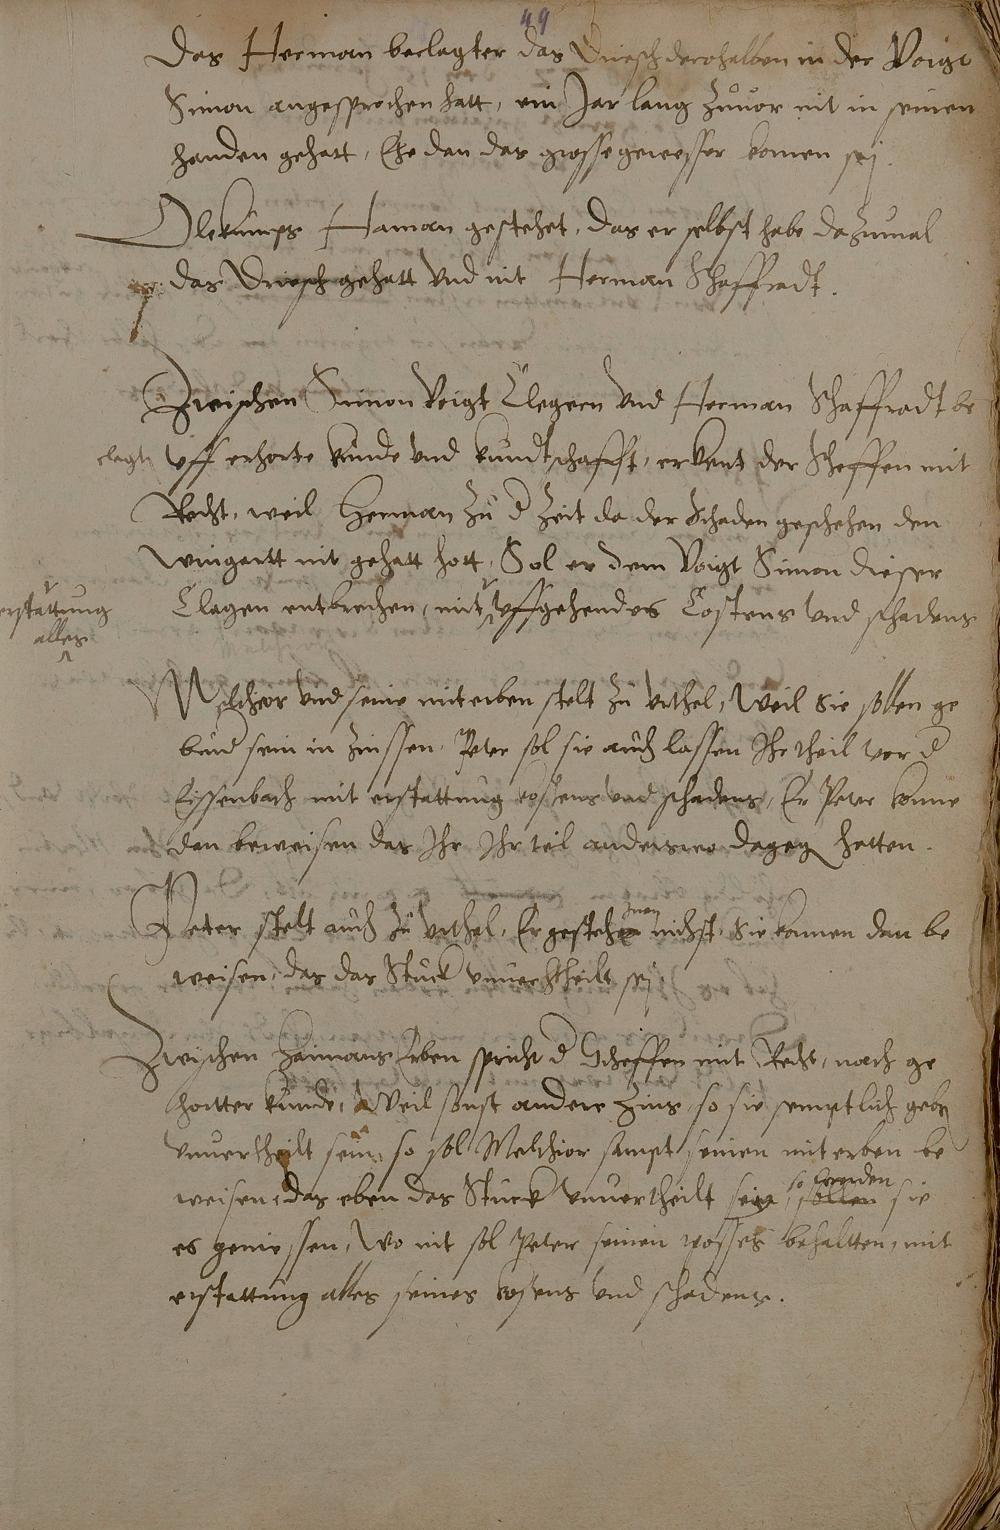 49
Das Herman beclagter das Driesch derohalben in der Voigt
Simon angesprochen hatt, ein Jar lang zuuor nit in seinen
handen gehatt, Ehe dan das grosse gewesser komen sej.
Haman gestehet, das er selbst habe dazumal
das Driesch gehatt vnd nit Herman Schaffradt.
Zwischen Simon Voigt Clegern vnd Herman Schaffradt be
clagt vff erhorte kunde vnd kundtschafft, erkent der Scheffen mit
Recht, weil Herman zu d Zeit da der Schaden geschehen den
wingartt nit gehatt hatt, Sol er dem Voigt Simon dieser
Clagen entbrechen, mit vffgehendes Costens vnd schadens
erstattung
alles
Melchior vnd seine miterben stelt zu vrthel, Weil sie sollen ge
bend sein in zinssen, Peter sol sie auch lassen Ihr theil vor d
Eissenbach mit erstattung kostens vnd schadens, Er Peter konne
dan beweisen das Ihr Ihr teil anderswo dageg hatten.
Peter stelt auch zu vrthel, Er gestehe Inen nichst, sie konnen dan be
weisen, das das Stuck vnuerthteilt sej
Zwischen Hamans Erben spricht d Scheffen mit Recht, nach ge
hortter kunde, Weil sonst andere Zins, so sie semptlich geben
vnuertheilt sein, so sol Melchior sampt seinen mit erben be
weisen, das eben das Stuck vnuertheilt sein, sollen sie
so
es geniessen, Wo nit sol Peter seinen possess behaltten, mit
erstattung alles seines kostens vnd schadens.